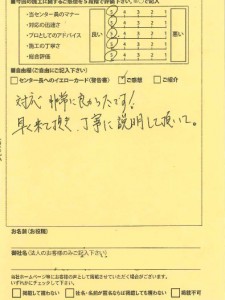 ■今回の施工に関するご感想を5段階で評価下さい。※ご記入
・当センター員のマナー
・対応の迅速さ
・プロとしてのアドバイス
・施工の丁寧さ
・総合評価
良い
5 4 3 2 1
5 4 3 2 1
5 4 3 2 1
5 4 3 2 1
5 4 3 2 1
悪い
■自由欄(ご自由にご記入下さい)
□センター長へのイエローカード(警告書) ☑ご感想 □ご紹介
対応 非常に良かったです!
早く来て頂き、丁寧に説明して頂いて。
お名前(お役職)
御社名(法人のお客様のみご記入下さい)
当社ホームページ等にお客様の声として掲載させていただく場合がございます。
いずれかにチェックして下さい。
□掲載して構わない □社名・名前が匿名ならば掲載しても構わない □掲載不可